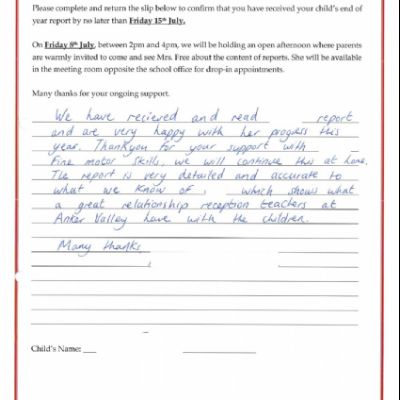 Please complete and return the slip below to confirm that you have received your child's end of
year report by no later than Friday 15th July.
On Friday 8th July, between 2pm and 4pm, we will be holding an open afternoon where parents
are warmly invited to come and see Mrs. Free about the content of reports. She will be available
in the meeting room opposite the school office for drop-in appointments.
Many thanks for your ongoing support.
We have recieved and read report
and are very happy with her progress this
year. Thankyou for your support with
Fine motor skills, we will continue this at home.
The report is very detailed and accurate to
what we know of , which shows what
a great relationship reception teachers at
Anker Valley have with the children.
Many thanks
,
Child's Name: